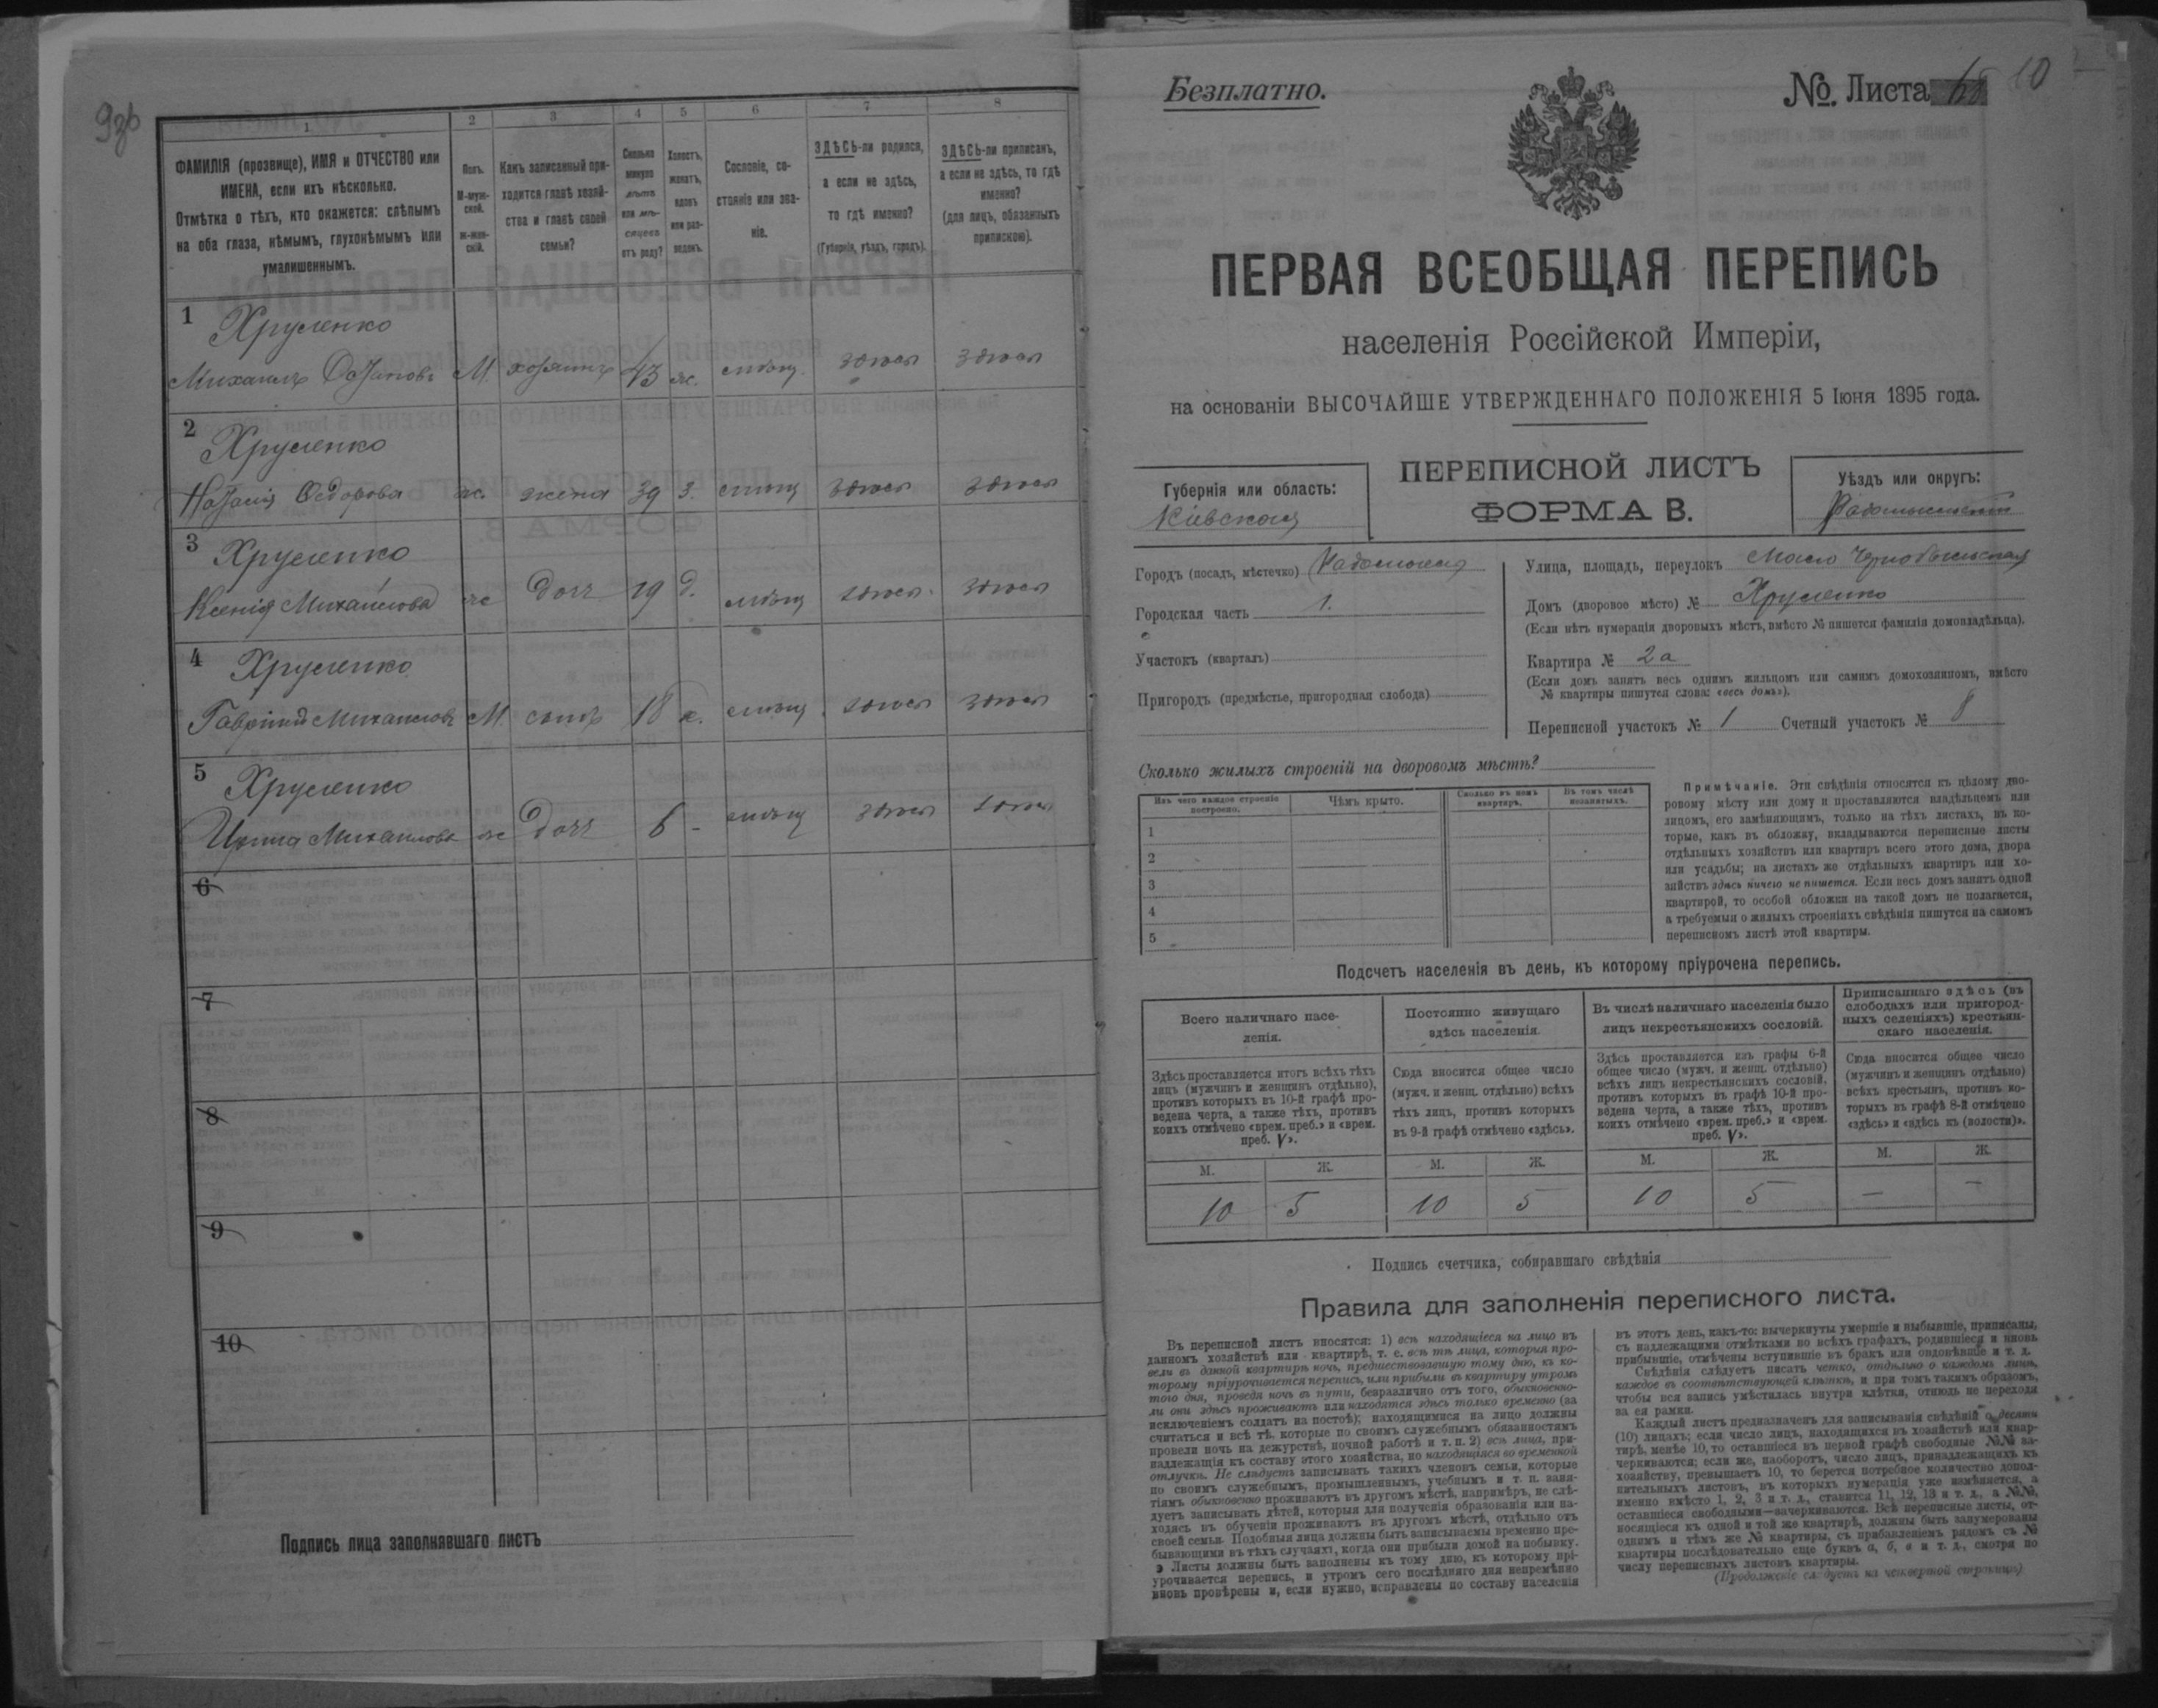 9зв
1
2
3
4
5
6
7
8
ФАМИЛІЯ (прозвище), ИМЯ и ОТЧЕСТВО или
ИМЕНА, если ихъ нѣсколько.
Отмѣтка о тѣхъ, кто окажется: слѣпымъ
на оба глаза, нѣмымъ, глухонѣмымъ или
умалишеннымъ.
Полъ.
М-муж-
ской.
ж-жен-
скій.
Какъ записанный при-
ходится главѣ хозяй-
ства и главѣ своей
семьи?
Сколько
минуло
лѣтъ
или мѣ-
сяцевъ
отъ роду?
Холостъ,
женатъ,
вдовъ
или раз-
веденъ.
Сословіе, со-
стояніе или зва-
ніе.
ЗДѢСЬ-ли родился,
а если не здѣсь,
то гдѣ именно?
(Губернія, уѣздъ, городъ).
ЗДѢСЬ-ли приписанъ,
а если не здѣсь, то гдѣ
именно?
(для лицъ, обязанныхъ
припискою).
1 Хруленко
Михаилъ М. хозяинъ 43 ж. мѣщ. здѣсь здѣсь
2 Хруленко
Наталія Федорова ж. жена 39 з. мѣщ здѣсь здѣсь
3 Хруленко
Ксенія Михайлова ж дочь 19 д. мѣщ здѣсь здѣсь
4 Хруленко
Гавріилъ Михаиловъ М. сынъ 18 х. мѣщ здѣсь здѣсь
5 Хруленко
Ирина Михаилова ж дочь 6 - мѣщ здѣсь здѣсь
6
7
8
9
10
Подпись лица заполнявшаго листъ
Безплатно.
№. Листа 10
ПЕРВАЯ ВСЕОБЩАЯ ПЕРЕПИСЬ
населенія Россійской Имперіи,
на основаніи ВЫСОЧАЙШЕ УТВЕРЖДЕННАГО ПОЛОЖЕНІЯ 5 Іюня 1895 года.
Губернія или область:
Кіевская
ПЕРЕПИСНОЙ ЛИСТЪ
ФОРМА В.
Уѣздъ или округъ:
Радомысльскій
Городъ (посадъ, мѣстечко) Радомысль
Городская часть 1.
Участокъ (кварталъ)
Пригородъ (предмѣстье, пригородная слобода)
Улица, площадь, переулокъ Мало Чернобыльская
Домъ (дворовое мѣсто) № Хруленко
(Если нѣтъ нумерація дворовыхъ мѣстъ, вмѣсто № пишется фамилія домовладѣльца).
Квартира № 2а
(Если домъ занятъ весь однимъ жильцомъ или самимъ домохозяиномъ, вмѣсто
№ квартиры пишутся слова: «весь домъ»).
Переписной участокъ № 1 Счетный участокъ № 8
Сколько жилыхъ строеній на дворовомъ мѣстѣ?
Изъ чего каждое строеніе
построено.
Чѣмъ крыто.
Сколько въ немъ
квартиръ.
Въ томъ числѣ
незанятыхъ.
1
2
3
4
5
Примѣчаніе. Эти свѣдѣнія относятся къ цѣлому дво-
ровому мѣсту или дому и проставляются владѣльцемъ или
лицомъ, его замѣняющимъ, только на тѣхъ листахъ, въ ко-
торые, какъ въ обложку, вкладываются переписные листы
отдѣльныхъ хозяйствъ или квартиръ всего этого дома, двора
или усадьбы; на листахъ же отдѣльныхъ квартиръ или хо-
зяйствъ здѣсь ничего не пишется. Если весь домъ занятъ одной
квартирой, то особой обложки на такой домъ не полагается,
а требуемыя о жилыхъ строеніяхъ свѣдѣнія пишутся на самомъ
переписномъ листѣ этой квартиры.
Подсчетъ населенія въ день, къ которому пріурочена перепись.
Всего наличнаго насе-
ленія.
Постоянно живущаго
здѣсь населенія.
Въ числѣ наличнаго населенія было
лицъ некрестьянскихъ сословій.
Приписаннаго здѣсь (въ
слободахъ или пригород-
ныхъ селеніяхъ) крестьян-
скаго населенія.
Здѣсь проставляется итогъ всѣхъ тѣхъ
лицъ (мужчинъ и женщинъ отдѣльно),
противъ которыхъ въ 10-й графѣ про-
ведена черта, а также тѣхъ, противъ
коихъ отмѣчено «врем. преб.» и «врем.
преб. V».
Сюда вносится общее число
(мужч. и женщ. отдѣльно) всѣхъ
тѣхъ лицъ, противъ которыхъ
въ 9-й графѣ отмѣчено «здѣсь».
Здѣсь проставляется изъ графы 6-й
общее число (мужч. и женщ. отдѣльно)
всѣхъ лицъ некрестьянскихъ сословій,
противъ которыхъ въ графѣ 10-й про-
ведена черта, а также тѣхъ, противъ
коихъ отмѣчено «врем. преб.» и «врем.
преб. V».
Сюда вносится общее число
(мужчинъ и женщинъ отдѣльно)
всѣхъ крестьянъ, противъ ко-
торыхъ въ графѣ 8-й отмѣчено
«здѣсь» и «здѣсь къ (волости)».
М. Ж. М. Ж. М. Ж. М. Ж.
10 5 10 5 10 5 — —
Подпись счетчика, собиравшаго свѣдѣнія
Правила для заполненія переписного листа.
Въ переписной листъ вносятся: 1) всѣ находящіеся на лицо въ
данномъ хозяйствѣ или квартирѣ, т. е. всѣ тѣ лица, которыя про-
вели въ данной квартирѣ ночь, предшествовавшую тому дню, къ ко-
торому пріурочивается перепись, или прибыли въ квартиру утромъ
того дня, проведя ночь въ пути, безразлично отъ того, обыкновенно-
ли они здѣсь проживаютъ или находятся здѣсь только временно (за
исключеніемъ солдатъ на постоѣ); находящимися на лицо должны
считаться и всѣ тѣ, которые по своимъ служебнымъ обязанностямъ
провели ночь на дежурствѣ, ночной работѣ и т. п. 2) всѣ лица, при-
надлежащія къ составу этого хозяйства, но находящіяся во временной
отлучкѣ. Не слѣдуетъ записывать такихъ членовъ семьи, которые
по своимъ служебнымъ, промышленнымъ, учебнымъ и т. п. заня-
тіямъ обыкновенно проживаютъ въ другомъ мѣстѣ, напримѣръ, не слѣ-
дуетъ записывать дѣтей, которыя для полученія образованія или на-
ходясь въ обученіи проживаютъ въ другомъ мѣстѣ, отдѣльно отъ
своей семьи. Подобныя лица должны быть записываемы временно пре-
бывающими въ тѣхъ случаяхъ, когда они прибыли домой на побывку.
Листы должны быть заполнены къ тому дню, къ которому прі-
урочивается перепись, и утромъ сего послѣдняго дня непремѣнно
вновь провѣрены и, если нужно, исправлены по составу населенія
въ этотъ день, какъ-то: вычеркнуты умершіе и выбывшіе, приписаны,
съ надлежащими отмѣтками во всѣхъ графахъ, родившіеся и вновь
прибывшіе, отмѣчены вступившіе въ бракъ или овдовѣвшіе и т. д.
Свѣдѣнія слѣдуетъ писать четко, отдѣльно о каждомъ лицѣ,
каждое въ соотвѣтствующей клѣткѣ, и при томъ такимъ образомъ,
чтобы вся запись умѣстилась внутри клѣтки, отнюдь не переходя
за ея рамки.
Каждый листъ предназначенъ для записыванія свѣдѣній о десяти
(10) лицахъ; если число лицъ, находящихся въ хозяйствѣ или квар-
тирѣ, менѣе 10, то оставшіеся въ первой графѣ свободные №№ за-
черкиваются; если же, наоборотъ, число лицъ, принадлежащихъ къ
хозяйству, превышаетъ 10, то берется потребное количество допол-
нительныхъ листовъ, въ которыхъ нумерація уже измѣняется, а
именно вмѣсто 1, 2, 3 и т. д., ставится 11, 12, 13 и т. д., а №№,
оставшіеся свободными—зачеркиваются. Всѣ переписные листы, от-
носящіеся къ одной и той же квартирѣ, должны быть занумерованы
однимъ и тѣмъ же № квартиры, съ прибавленіемъ рядомъ съ №
квартиры послѣдовательно еще буквъ а, б, в и т. д., смотря по
числу переписныхъ листовъ квартиры.
(Продолженіе слѣдуетъ на четвертой страницѣ)